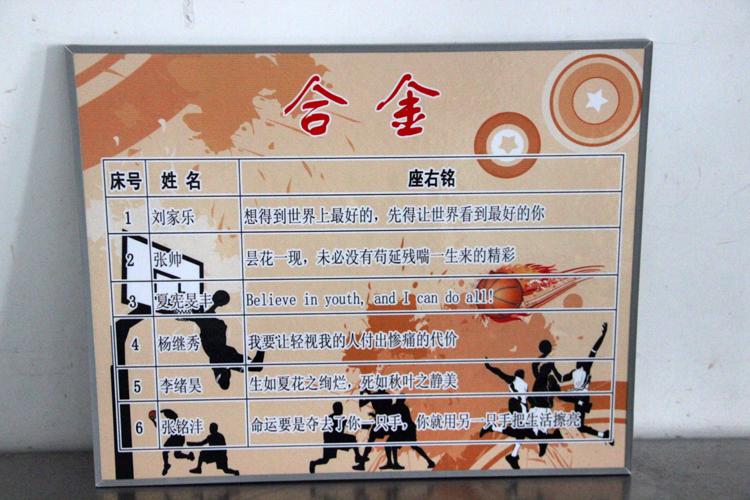 合金
床号 姓名 座右铭
1 刘家乐 想得到世界上最好的，先得让世界看到最好的你
2 张帅 昙花一现，未必没有苟延残喘一生来的精彩
3 夏宪昊丰 Believe in youth, and I can do all!
4 杨继秀 我要让轻视我的人付出惨痛的代价
5 李绪昊 生如夏花之绚烂，死如秋叶之静美
6 张铭沣 命运要是夺去了你一只手，你就用另一只手把生活擦亮